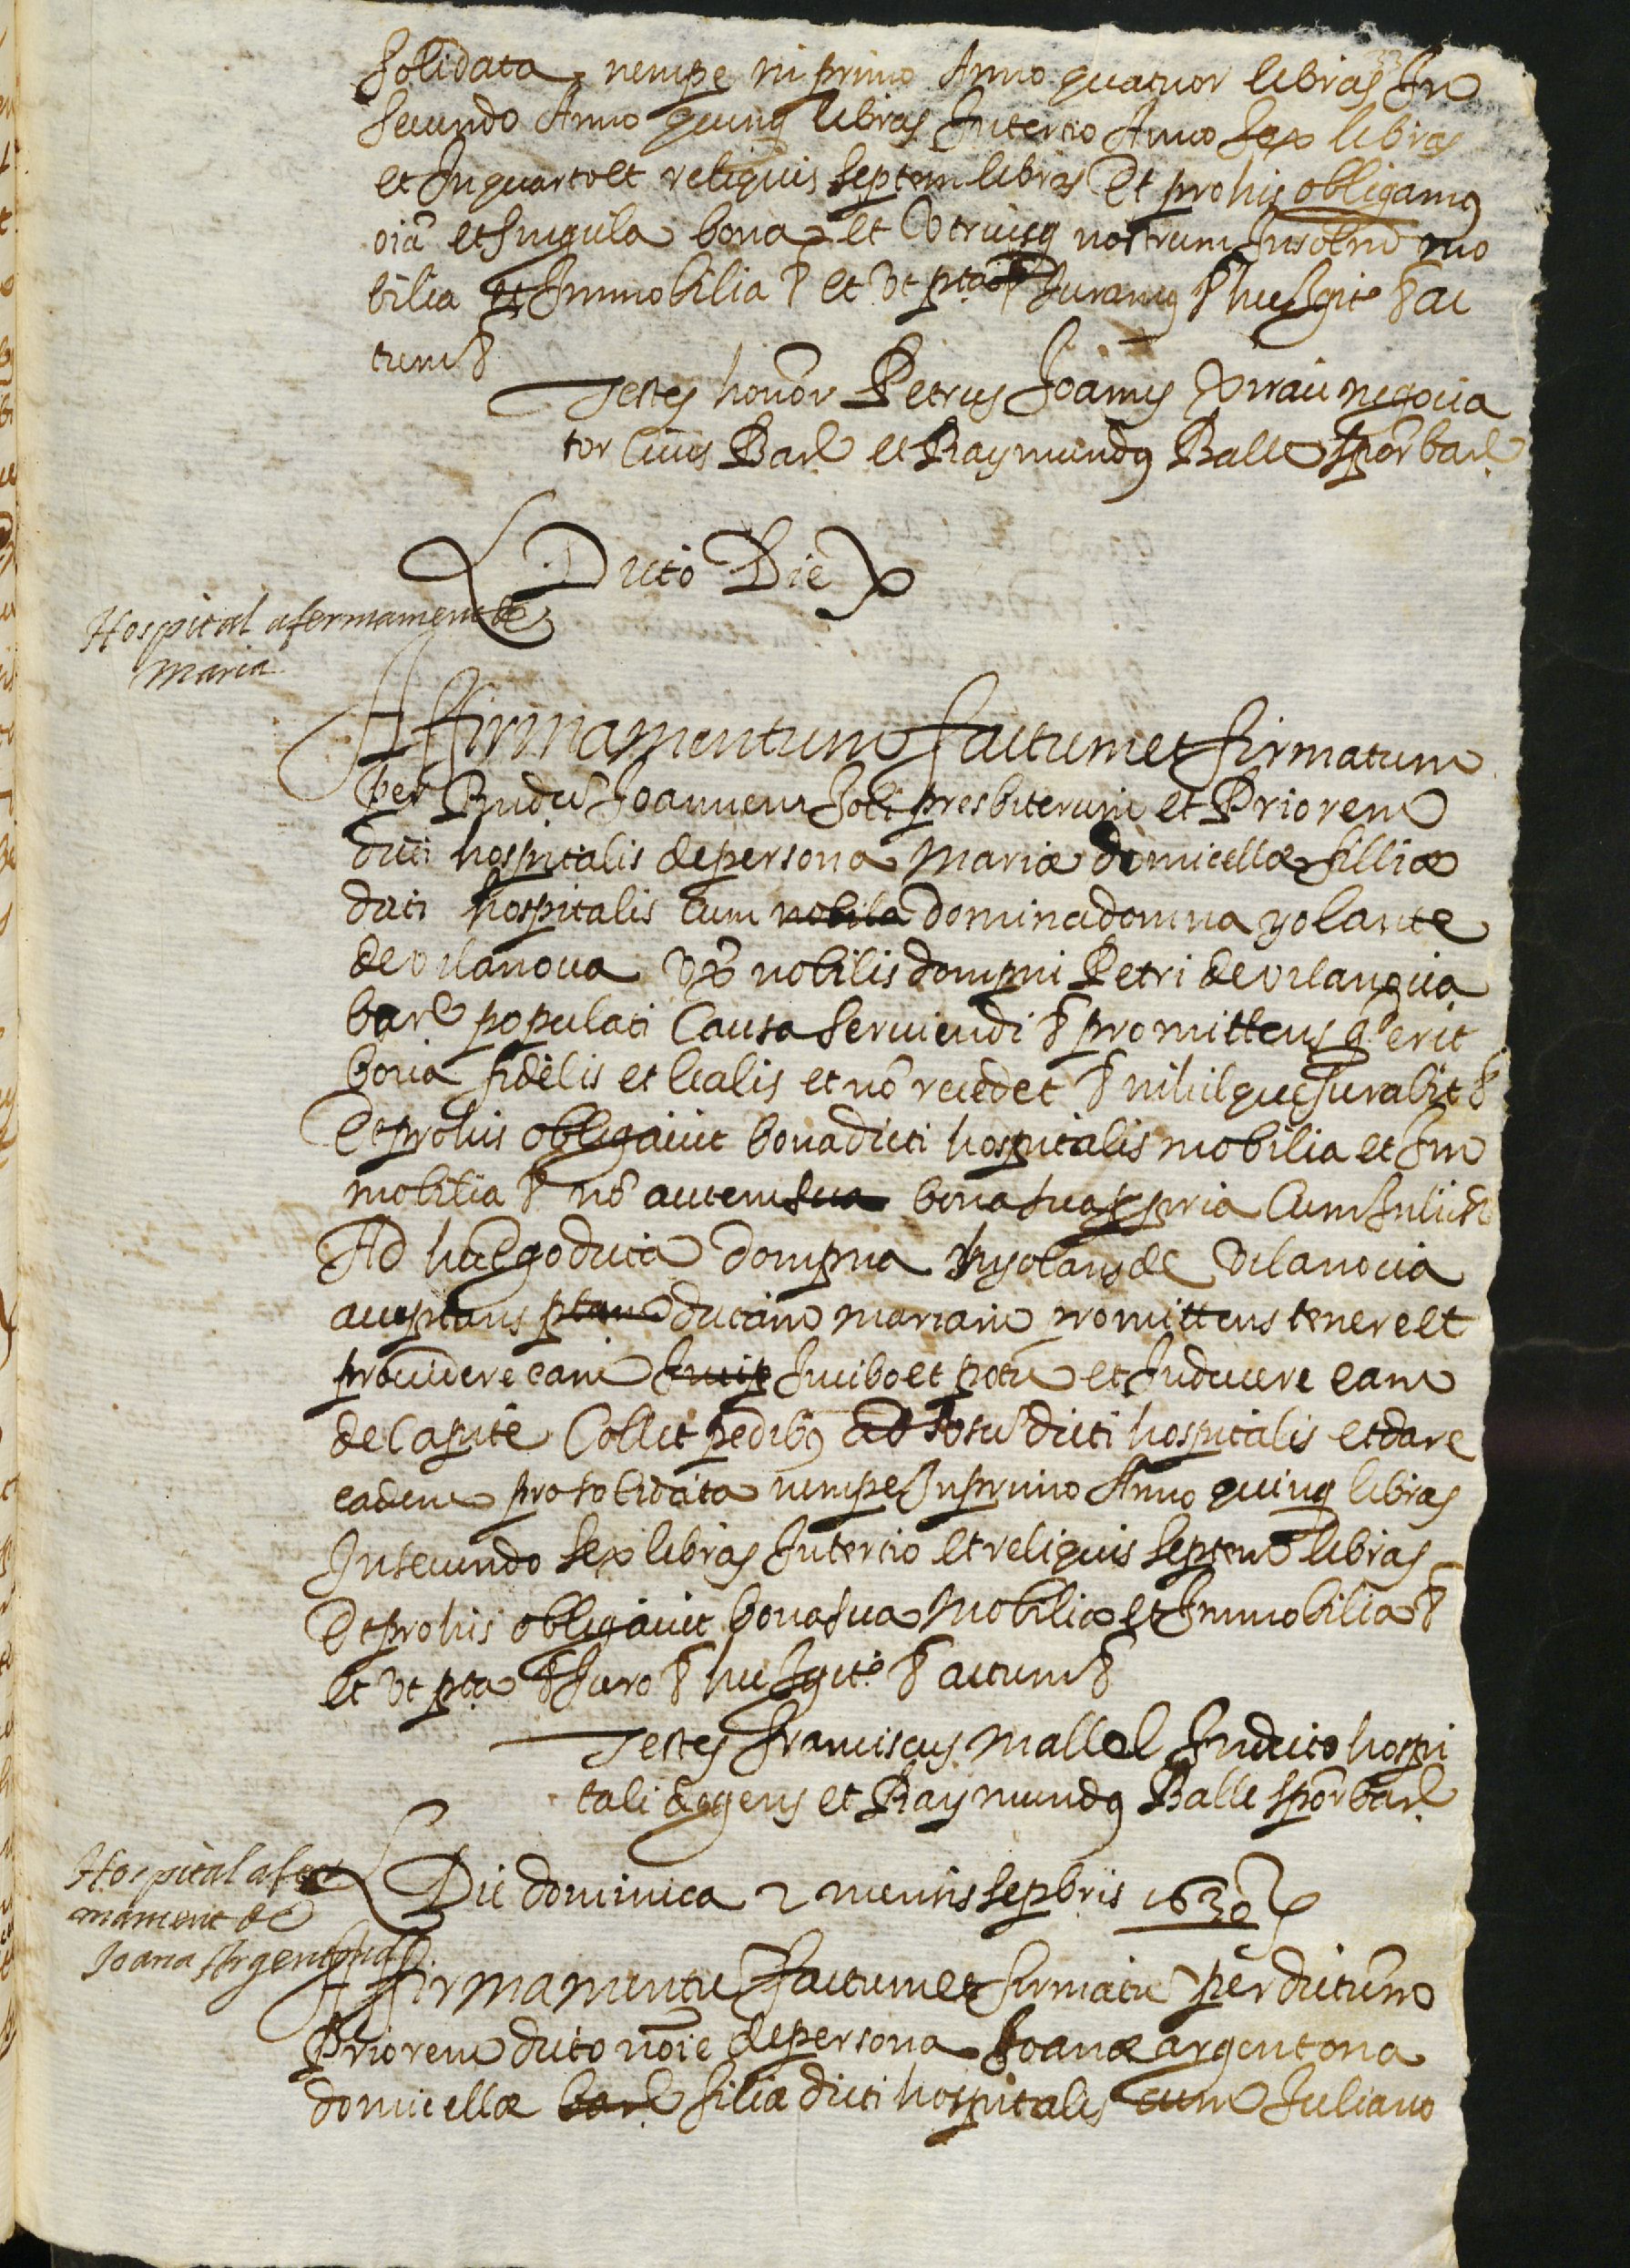 solidata, nempe in primo Anno quatuor libras In
secundo Anno quinq libras Intertio Anno sex libras
et Inquarto et reliquis septem libras Et pro his obligamus
oia et singula bona et Utriusq nostrum Insolm mo
bilia et Immobilia & et Ut pta & Juramus & hec Igit & ac
tum &
Testes honor Petrus Joannes negotia
tor Civis Bar et Raymundus Balle spor bar
Dicto Die
Hospital afermament de
Maria
Affirmamentum factum et firmatum
per Rndu Joannem Soli presbiterum et Priorem
dicti hospitalis de persona Mariæ domicellæ filliæ
dicti hospitalis cum nobila domina domna yolante
de vilanova Ux nobilis dompni Petri de vilanova
bare populati Causa serviendi & promittens q erit
bona fidelis et lealis et no recedet & nihilque furabit &
Et pro his obligavit bona dicti hospitalis mobilia et Im
mobilia & no autem sua bona sua ppria Cum Intus &
Ad hec Ego dicta dompna hyolans de Vilanova
acceptans dictam mariam promittens tenere et
providere eam Incibo et potu et Inducere eam
de Capite Collit pedibus ad dicti hospitalis et dare
eadem pro solidata nempe Inprimo Anno quinq libras
Insecundo sex libras Intertio et reliquis septem libras
Et pro his obligavit bona sua Mobilia et Immobilia &
et Ut pta & Juro & hec Igit & actum &
Testes Franciscus Mallol Indicto hospi
tali degens et Raymundus Balle spor bar
Hospital afer
mament de
Joana Argentona
Die dominica 2 mensis sepbris 1630
Affirmamentu Factum et firmatu per dictum
Priorem dicto noie de persona Joanæ argentona
domicellæ bar filiæ dicti hospitalis cum Juliano